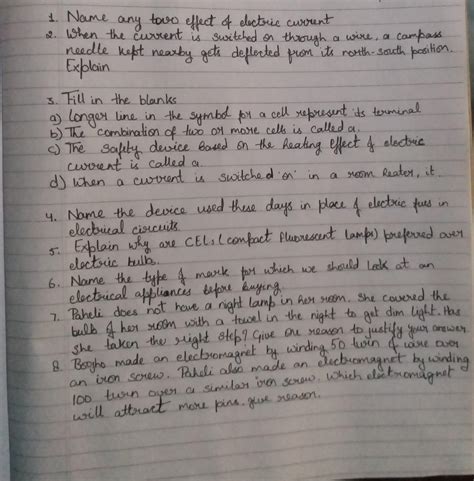 1. Name any two effect of electric current
2. When the current is switched on through a wire, a compass
needle kept nearby gets deflected from its north-south position.
Explain
3. Fill in the blanks
a) Longer line in the symbol for a cell represent its terminal
b) The combination of two or more cells is called a.
c) The safety device based on the heating effect of electric
current is called a.
d) When a current is switched 'on' in a room heater, it.
4. Name the device used these days in place of electric fuses in
electrical circuits.
5. Explain why are CFLs (compact fluorescent lamps) preferred over
electric bulbs.
6. Name the type of mark for which we should look at on
electrical appliances before buying.
7. Paheli does not have a night lamp in her room. She covered the
bulb of her room with a towel in the night to get dim light. Has
she taken the right step? Give one reason to justify your answer.
8. Boojho made an electromagnet by winding 50 turn of wire over
an iron screw. Paheli also made an electromagnet by winding
100 turn over a similar iron screw. Which electromagnet
will attract more pins. give reason.